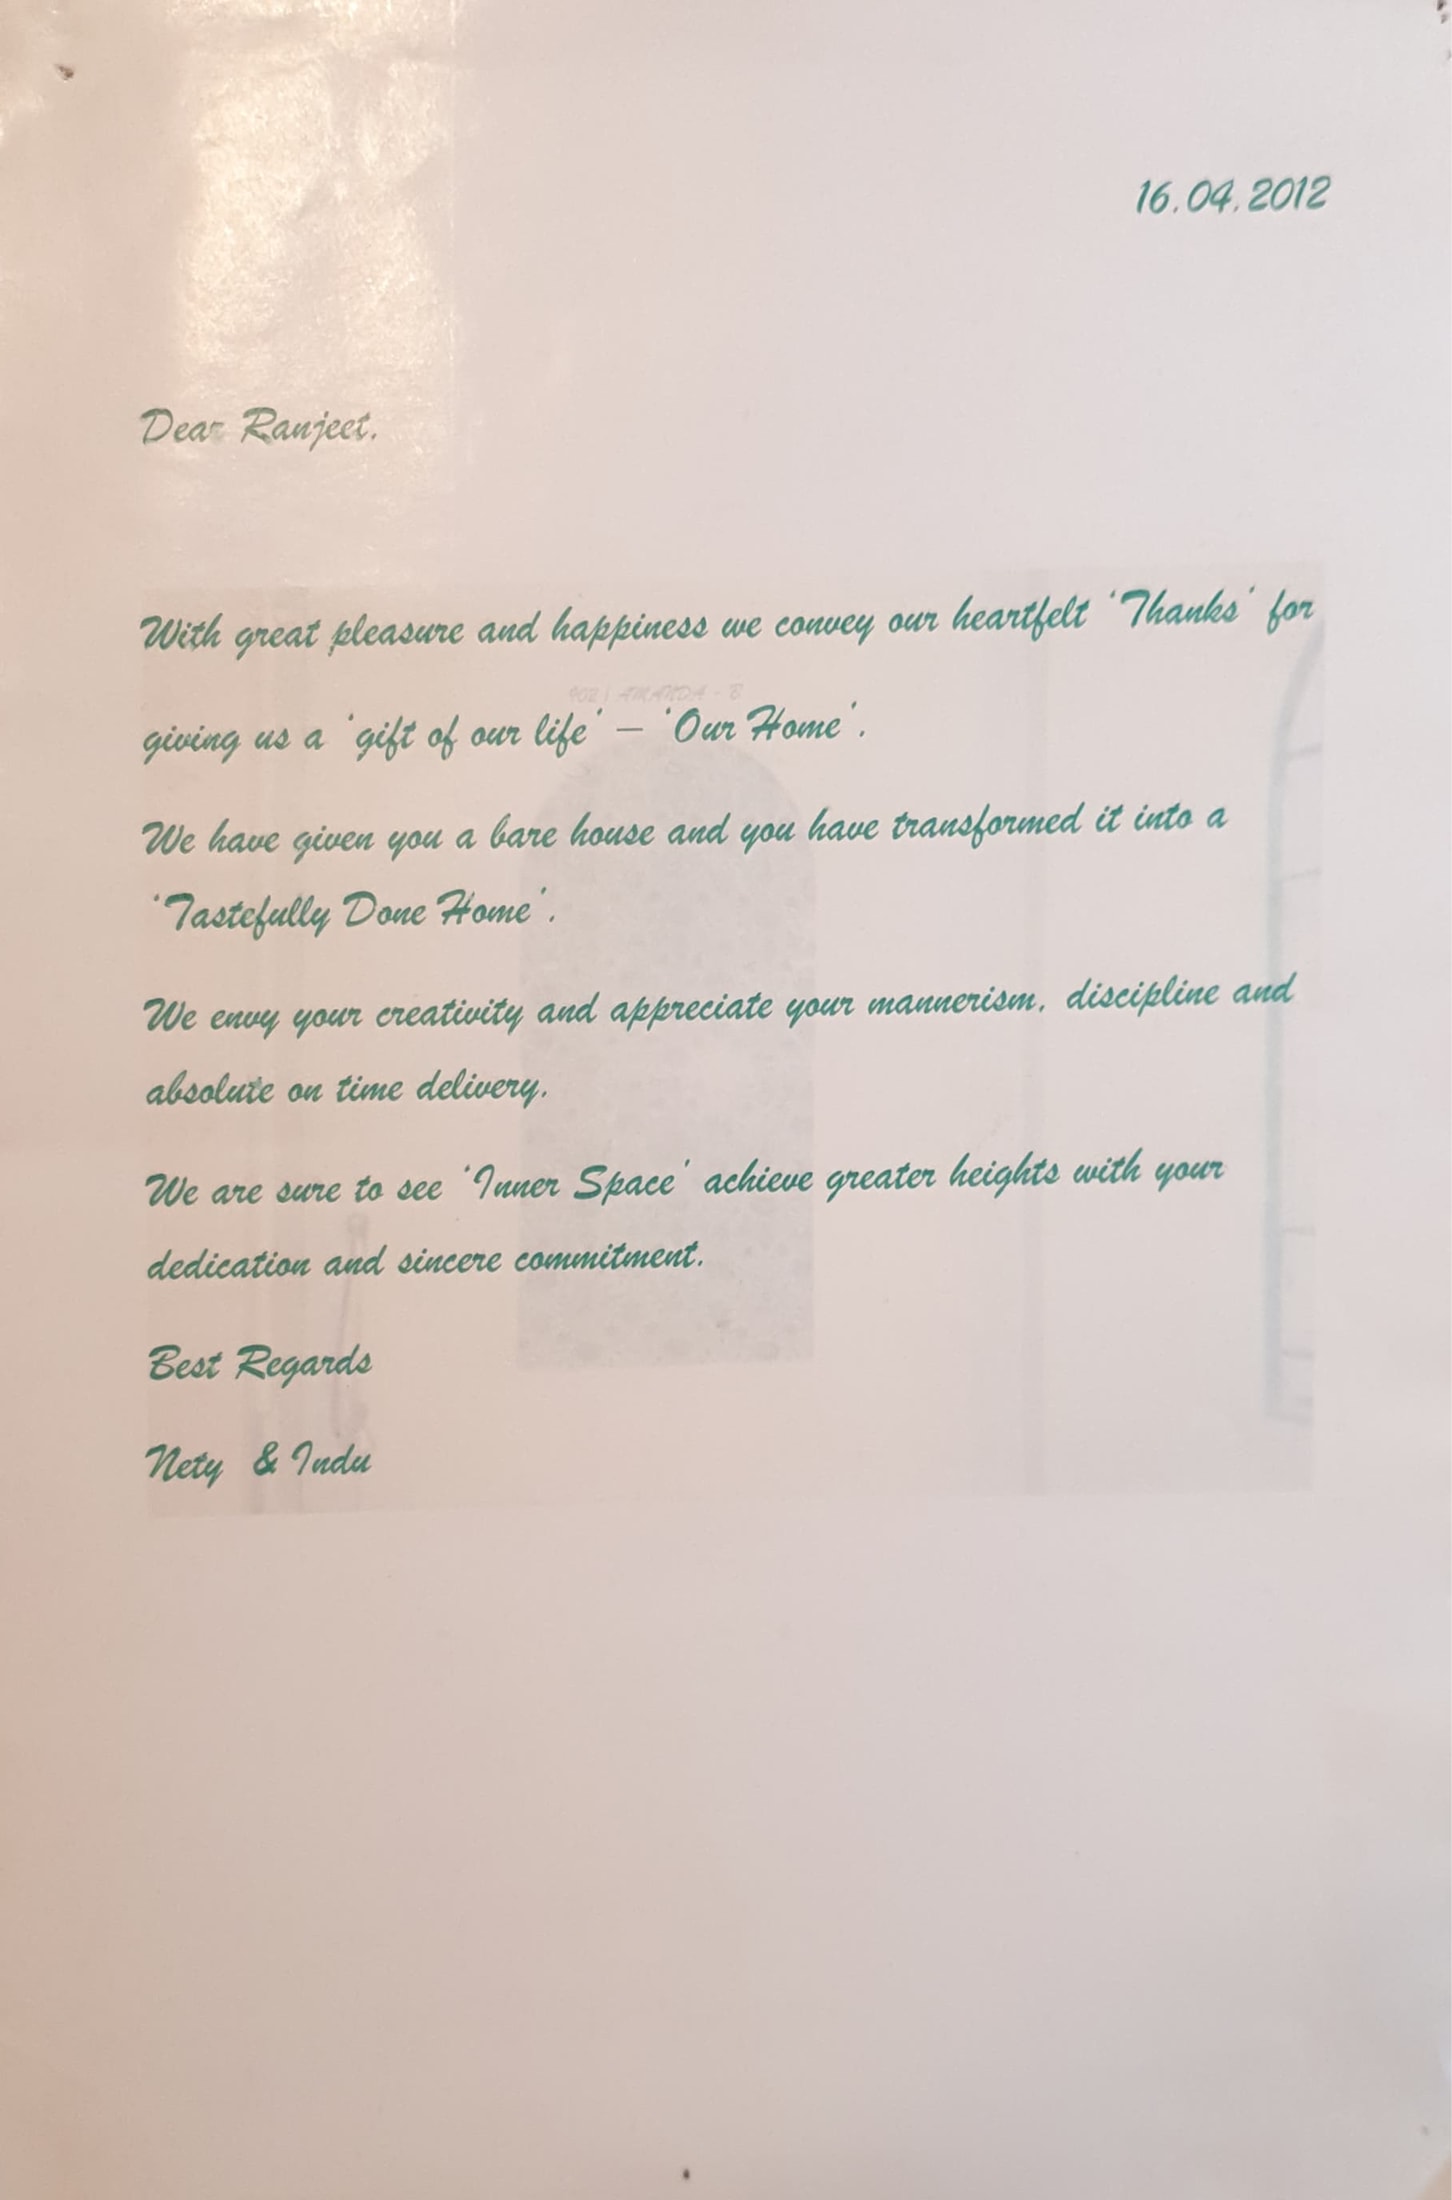 16.04.2012
Dear Ranjeet,
With great pleasure and happiness we convey our heartfelt 'Thanks' for
giving us a 'gift of our life' – 'Our Home'.
We have given you a bare house and you have transformed it into a
'Tastefully Done Home'.
We envy your creativity and appreciate your mannerism, discipline and
absolute on time delivery.
We are sure to see 'Inner Space' achieve greater heights with your
dedication and sincere commitment.
Best Regards
Nety & Indu